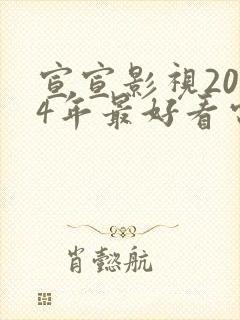 宣宣影視20
4年最好看
肖懿航